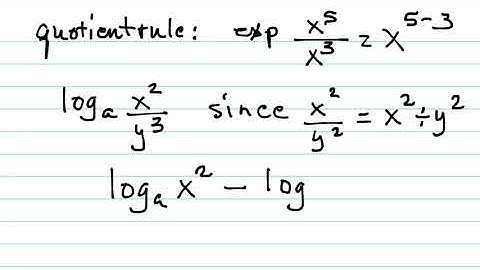 quotient rule: exp x⁵/x³ = x⁵⁻³
logₐ x²/y³ since x²/y² = x² ÷ y²
logₐ x² − log